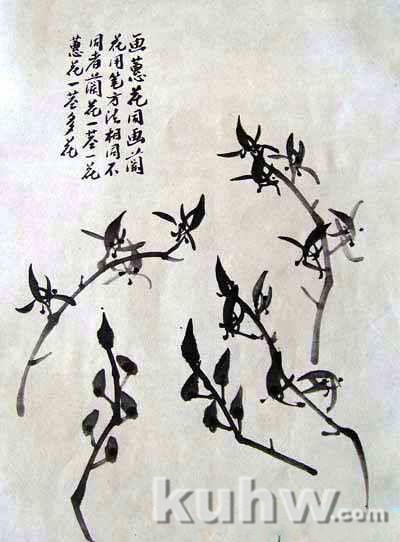 画蕙花同画兰
花用笔方法相同不
同者兰花一茎一花
蕙花一茎多花
kuhw.com